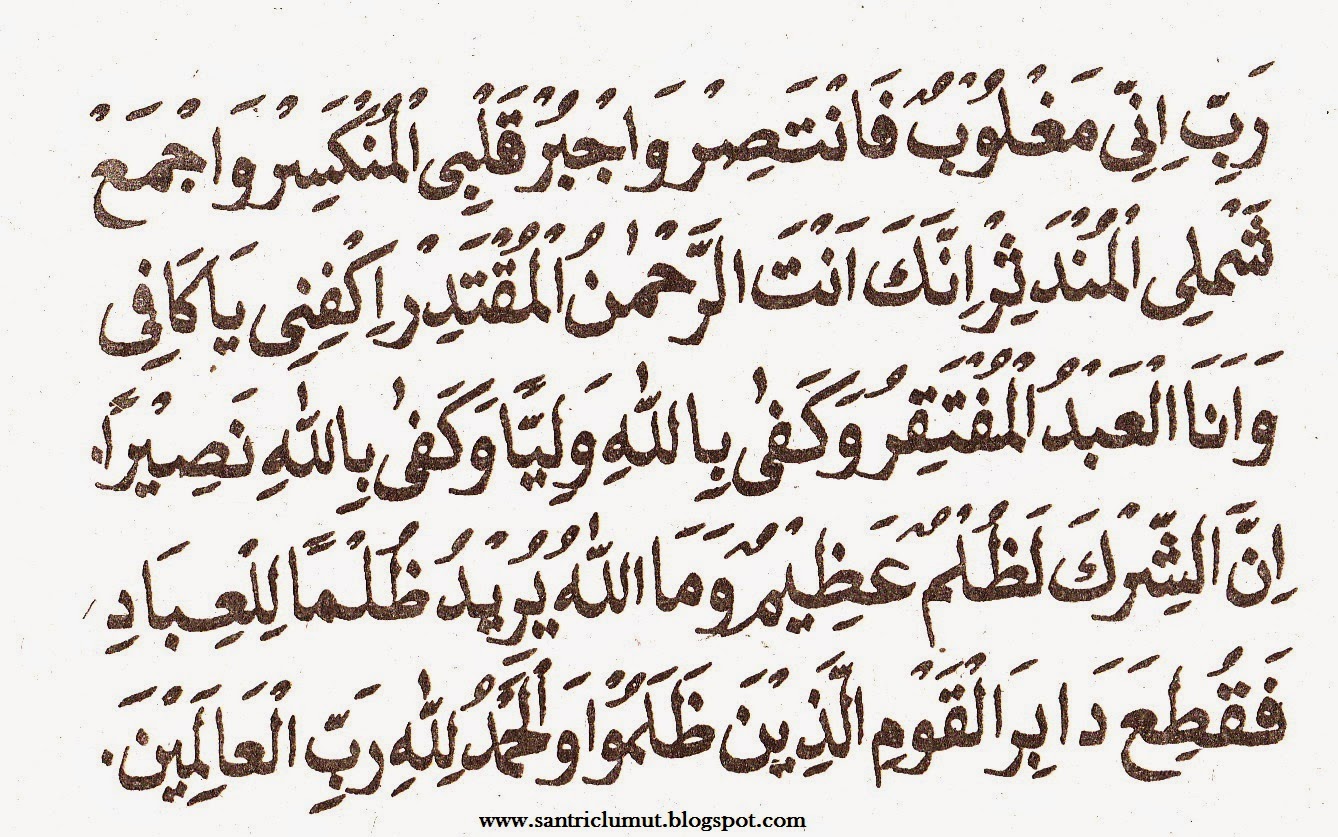 رَبِّ اِنِّى مَغْلُوْبٌ فَانْتَصِرْ وَاجْبُرْ قَلْبِى الْمُنْكَسِرْ وَاجْمَعْ
شَمْلِى الْمُنْدَثِرْ اِنَّكَ اَنْتَ الرَّحْمٰنُ الْمُقْتَدِرْ اِكْفِنِى يَاكَافِى
وَاَنَا الْعَبْدُ الْمُفْتَقِرُ وَكَفٰى بِاللّٰهِ وَلِيًّا وَكَفٰى بِاللّٰهِ نَصِيْرًا.
اِنَّ الشِّرْكَ لَظُلْمٌ عَظِيْمٌ وَمَا اللّٰهُ يُرِيْدُ ظُلْمًا لِلْعِبَادِ
فَقُطِعَ دَابِرَ الْقَوْمِ الَّذِيْنَ ظَلَمُوْا وَالْحَمْدُ لِلّٰهِ رَبِّ الْعَالَمِيْنَ.
www.santriclumut.blogspot.com